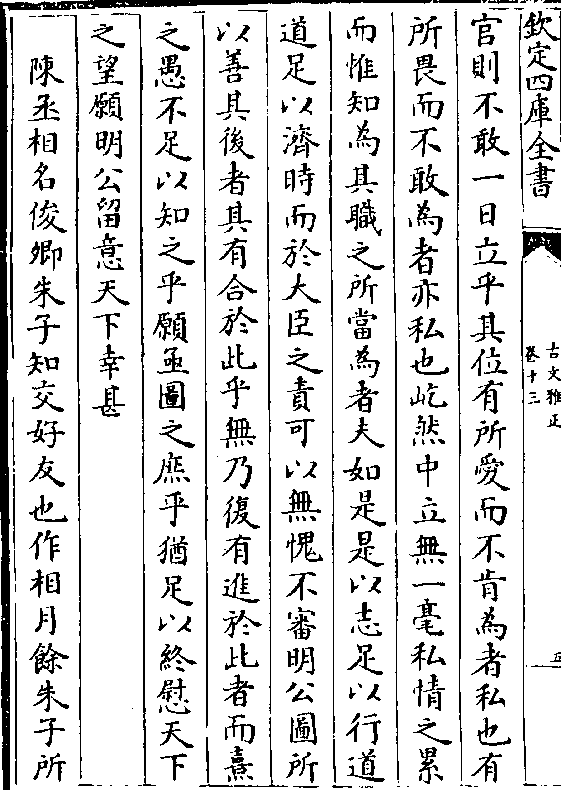 欽定四庫全書
古文雅正
卷十三
五
官則不敢一日立乎其位有所愛而不肯為者私也有
所畏而不敢為者亦私也屹然中立無一毫私情之累
而惟知為其職之所當為者夫如是是以志足以行道
道足以濟時而於大臣之責可以無愧不審明公圖所
以善其後者其有合於此乎無乃復有進於此者而熹
之愚不足以知之乎願亟圖之庶乎猶足以終慰天下
之望願明公留意天下幸甚
陳丞相名俊卿朱子知交好友也作相月餘朱子所